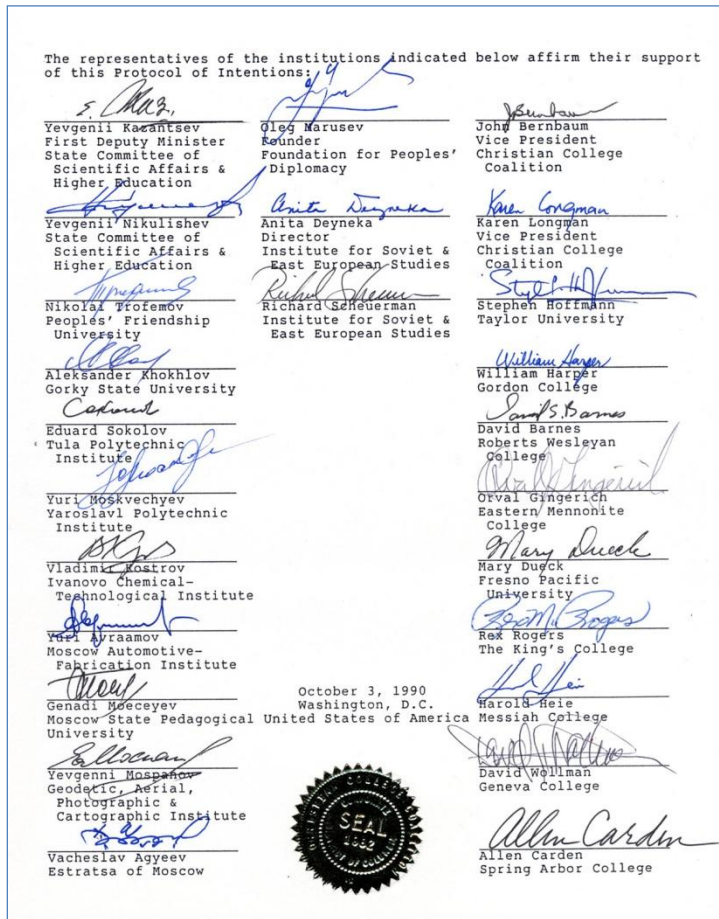 The representatives of the institutions indicated below affirm their support
of this Protocol of Intentions:
Yevgenii Kazantsev
First Deputy Minister
State Committee of
Scientific Affairs &
Higher Education
Yevgenii Nikulishev
State Committee of
Scientific Affairs &
Higher Education
Nikolai Trofemov
Peoples' Friendship
University
Aleksander Khokhlov
Gorky State University
Eduard Sokolov
Tula Polytechnic
Institute
Yuri Moskvechyev
Yaroslavl Polytechnic
Institute
Vladimir Kostrov
Ivanovo Chemical-
Technological Institute
Yuri Avraamov
Moscow Automotive-
Fabrication Institute
Genadi Moeceyev
Moscow State Pedagogical
University
Yevgenni Mospanov
Geodetic, Aerial,
Photographic &
Cartographic Institute
Vacheslav Agyeev
Estratsa of Moscow
Oleg Marusev
Founder
Foundation for Peoples'
Diplomacy
Anita Deyneka
Anita Deyneka
Director
Institute for Soviet &
East European Studies
Richard Scheuerman
Institute for Soviet &
East European Studies
October 3, 1990
Washington, D.C.
United States of America
SEAL
J Bernbaum
John Bernbaum
Vice President
Christian College
Coalition
Karen Longman
Karen Longman
Vice President
Christian College
Coalition
Stephen Hoffmann
Taylor University
William Harper
William Harper
Gordon College
David S. Barnes
David Barnes
Roberts Wesleyan
College
Orval Gingerich
Orval Gingerich
Eastern Mennonite
College
Mary Dueck
Mary Dueck
Fresno Pacific
University
Rex M. Rogers
Rex Rogers
The King's College
Harold Heie
Messiah College
David Wollman
Geneva College
Allen Carden
Allen Carden
Spring Arbor College